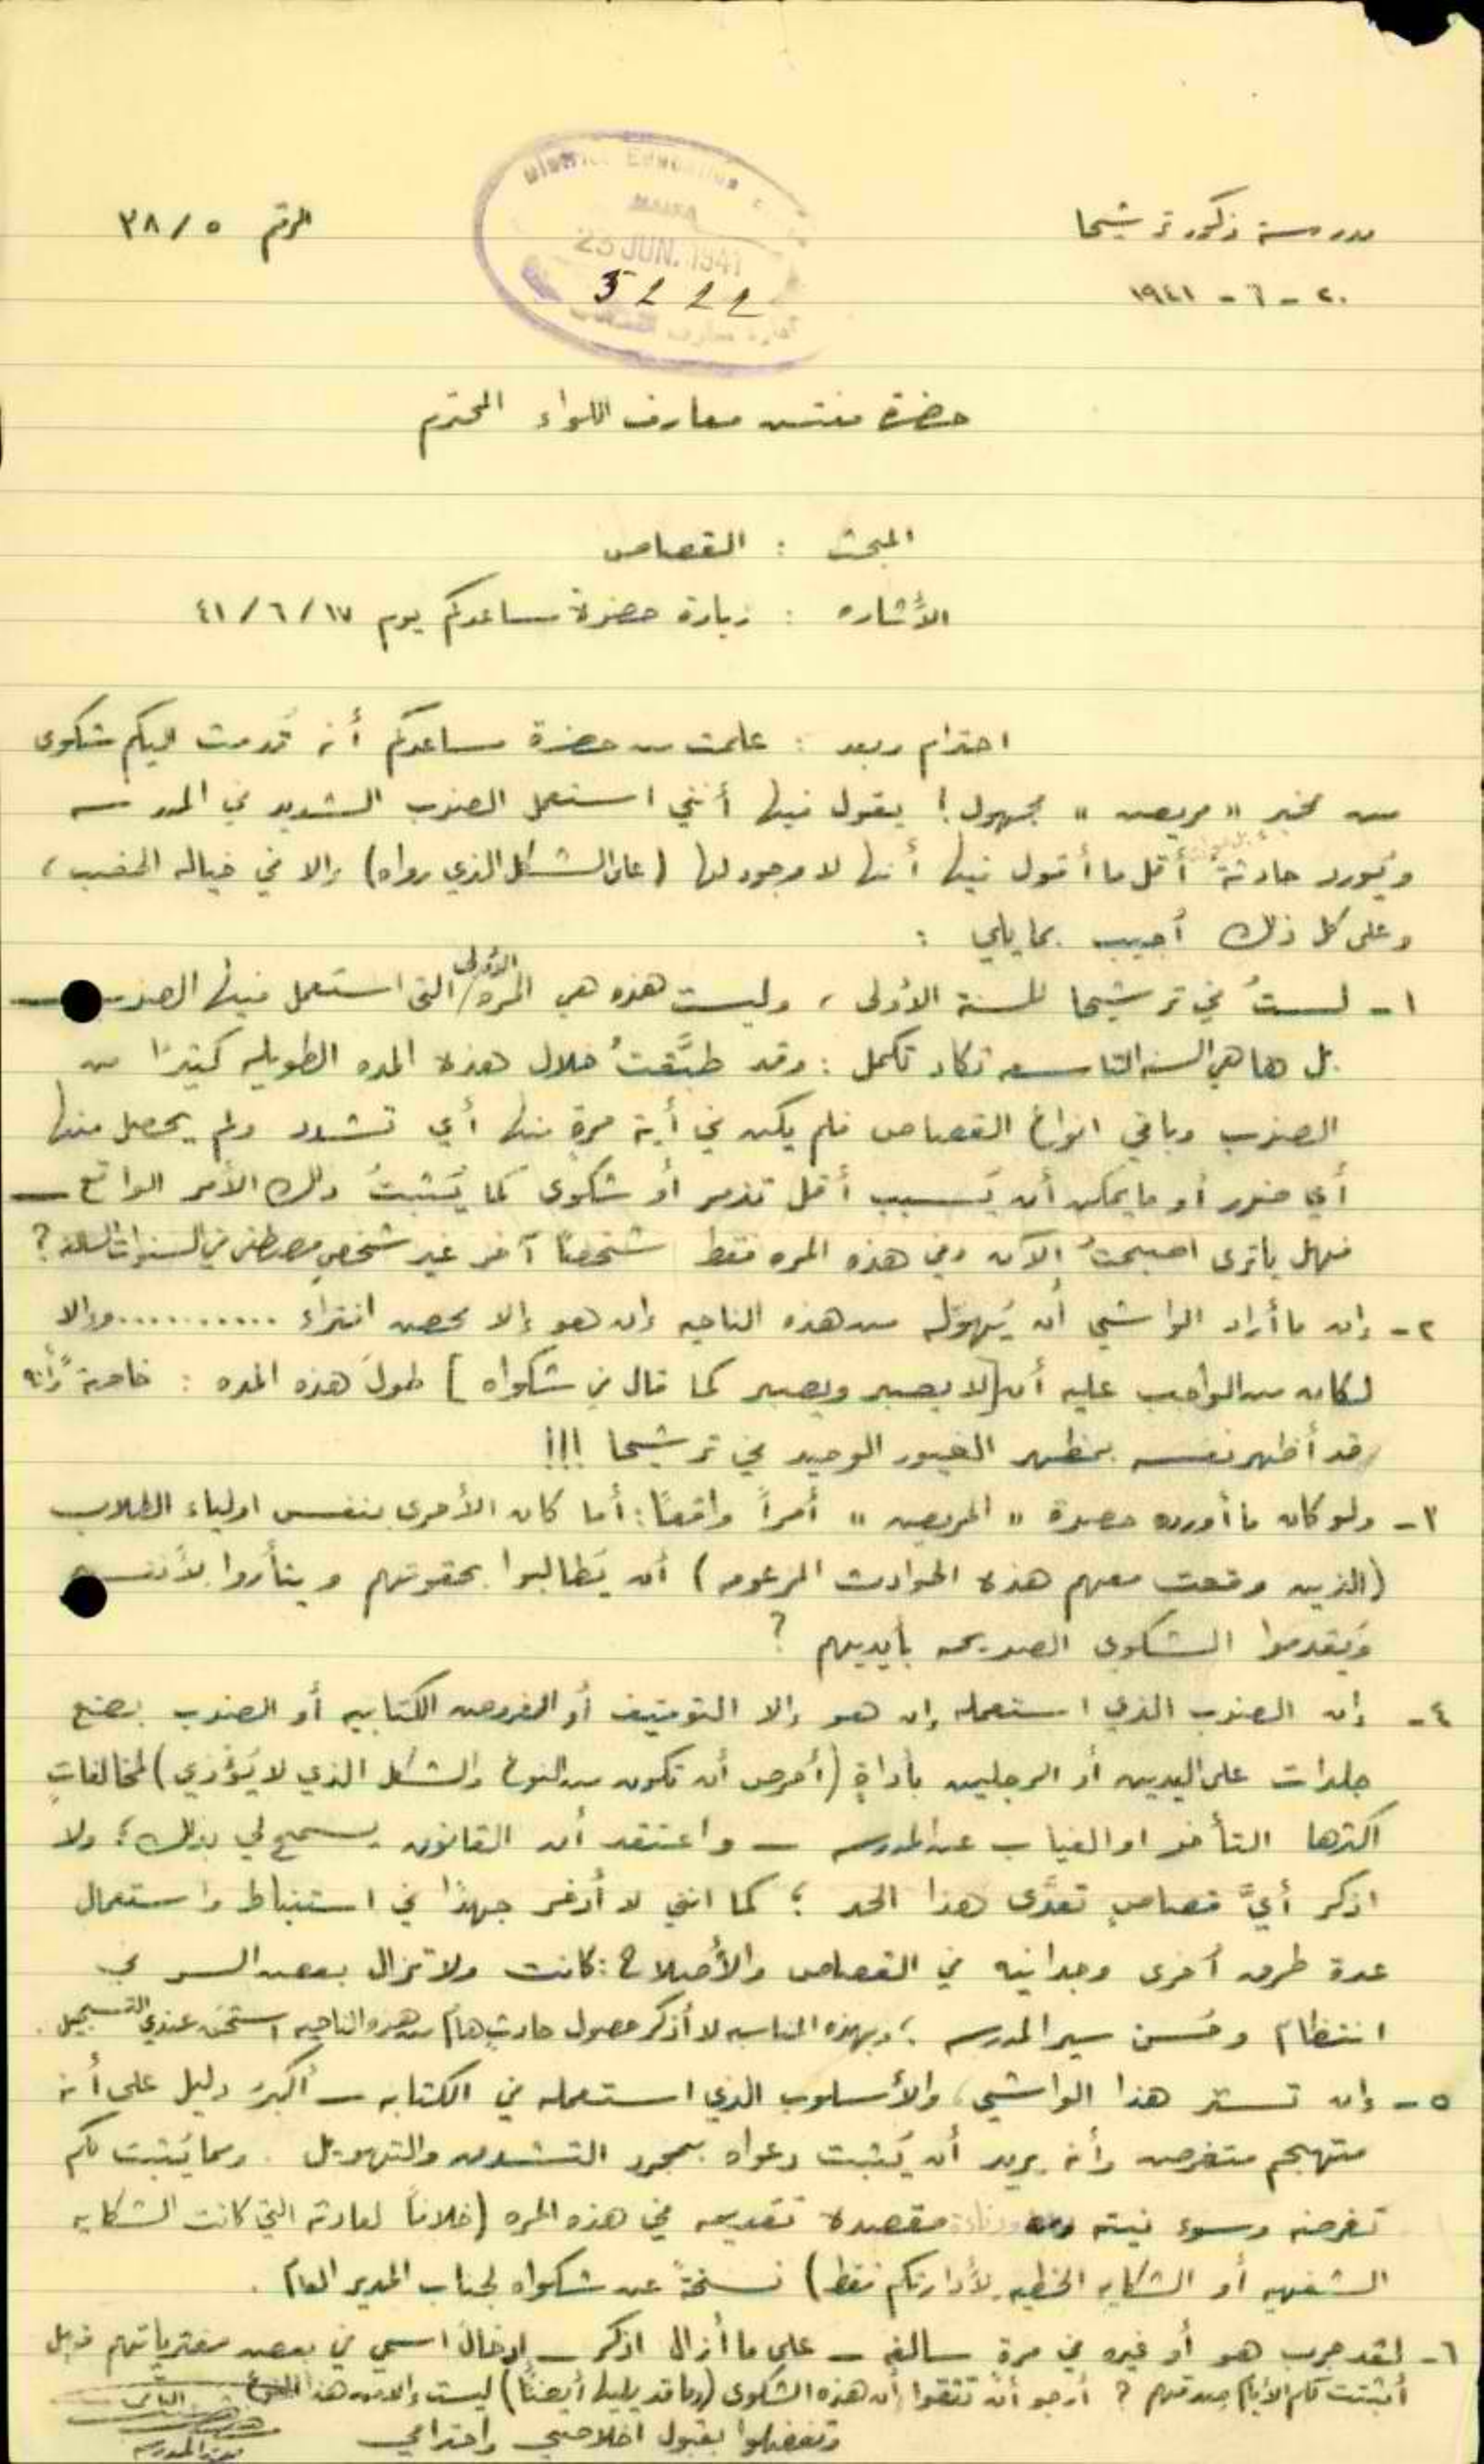 مدرسة ذكور ترشيحا
الرقم ٣٨/٥
٢٠ - ٦ - ١٩٤١
District Education
HAIFA
23 JUN. 1941
5222
حضرة مفتش معارف اللواء المحترم
المبحث : القصاص
الأشاره : زيارة حضرة مساعدكم يوم ٤١/٦/١٧
احترام وبعد : علمت من حضرة مساعدكم أنه قُدمت اليكم شكوى
من مخبر " مريض " مجهول ! يقول فيها أنني استعمل الضرب الشديد في المدرسه
ويُورد حادثة أقل ما أقول فيها أنها لا وجود لها (على الشكل الذي رواه) إلا في خياله الخصب ،
وعلى كل ذلك أجيب بما يلي :
١- لستُ في ترشيحا للسنة الأولى ، وليست هذه هي المره الأولى التي استعمل فيها الضرب
بل ها هي السنه التاسعه تكاد تكمل : وقد طبَّقتُ خلال هذه المده الطويله كثيرًا من
الضرب وباقي انواع القصاص فلم يكن في أية مرةٍ منها أي تشدد ولم يحصل منها
أي ضرر أو ما يمكن أن يُسبب أقل تذمر أو شكوى كما يُثبتُ ذلك الأمر الواقع —
فهل يا ترى اصبحتُ الآن وفي هذه المره فقط شخصًا آخر غير شخصٍ مصطفى في السنوات السالفه ?
٢- إن ما أراد الواشي أن يُهوّله من هذه الناحيه إن هو إلا محض افتراء ........... وإلا
لكان من الواجب عليه أن [لا يصبر ويصبر كما قال في شكواه] طولَ هذه المده : خاصةً وأنه
قد أظهر نفسه بمظهر الغيور الوحيد في ترشيحا !!!
٣- ولو كان ما أورده حضرة " المريض " أمراً واقعًا : أما كان الأحرى بنفس اولياء الطلاب
(الذين وقعت معهم هذه الحوادث المزعومه) أن يُطالبوا بحقوقهم ويثأروا لأنفسهم
ويُقدموا الشكوى الصريحه بأيديهم ?
٤- إن الضرب الذي استعمله إن هو إلا التوقيف أو الفروض الكتابيه أو الضرب بضع
جلدات على اليدين أو الرجلين بأداةٍ (أحرص أن تكون من النوع والشكل الذي لا يُؤذي) لمخالفاتٍ
اكثرها التأخر او الغياب عن المدرسه — واعتقد أن القانون يسمح لي بذلك ؛ ولا
اذكر أيَّ قصاصٍ تعدَّى هذا الحد ؛ كما انني لا أدخر جهدًا في استنباط واستعمال
عدة طرق أخرى وجدانيه في القصاص والأصلاح : كانت ولا تزال بعض السر في
انتظام وحُسن سير المدرسه ؛ وبهذه المناسبه لا أذكر حصول حادثٍ هام من هذه الناحيه استحق عندي التسجيل .
٥- إن تستر هذا الواشي ، والأسلوب الذي استعمله في الكتابه — أكبرُ دليل على أنه
متهجم متغرض وأنه يريد أن يُثبت دعواه بمجرد التشدق والتهويل . ومما يُثبت لكم
تغرضه وسوء نيته مقصده تقديمه في هذه المره (خلافاً لعادته التي كانت الشكايه
الشفهيه أو الشكايه الخطيه لأدارتكم فقط) نسخةً عن شكواه لجناب المدير العام .
٦- لقد جرب هو أو غيره في مرة سالفه — على ما أزال اذكر — إدخال اسمي في بعض مفترياتهم فهل
أثبتت لكم الأيام صدقهم ? أرجو أن تثقوا أن هذه الشكوى (وما قد يليها أيضًا) ليست إلا من هذا النوع
وتفضلوا بقبول اخلاصي واحترامي
مدير المدرسه